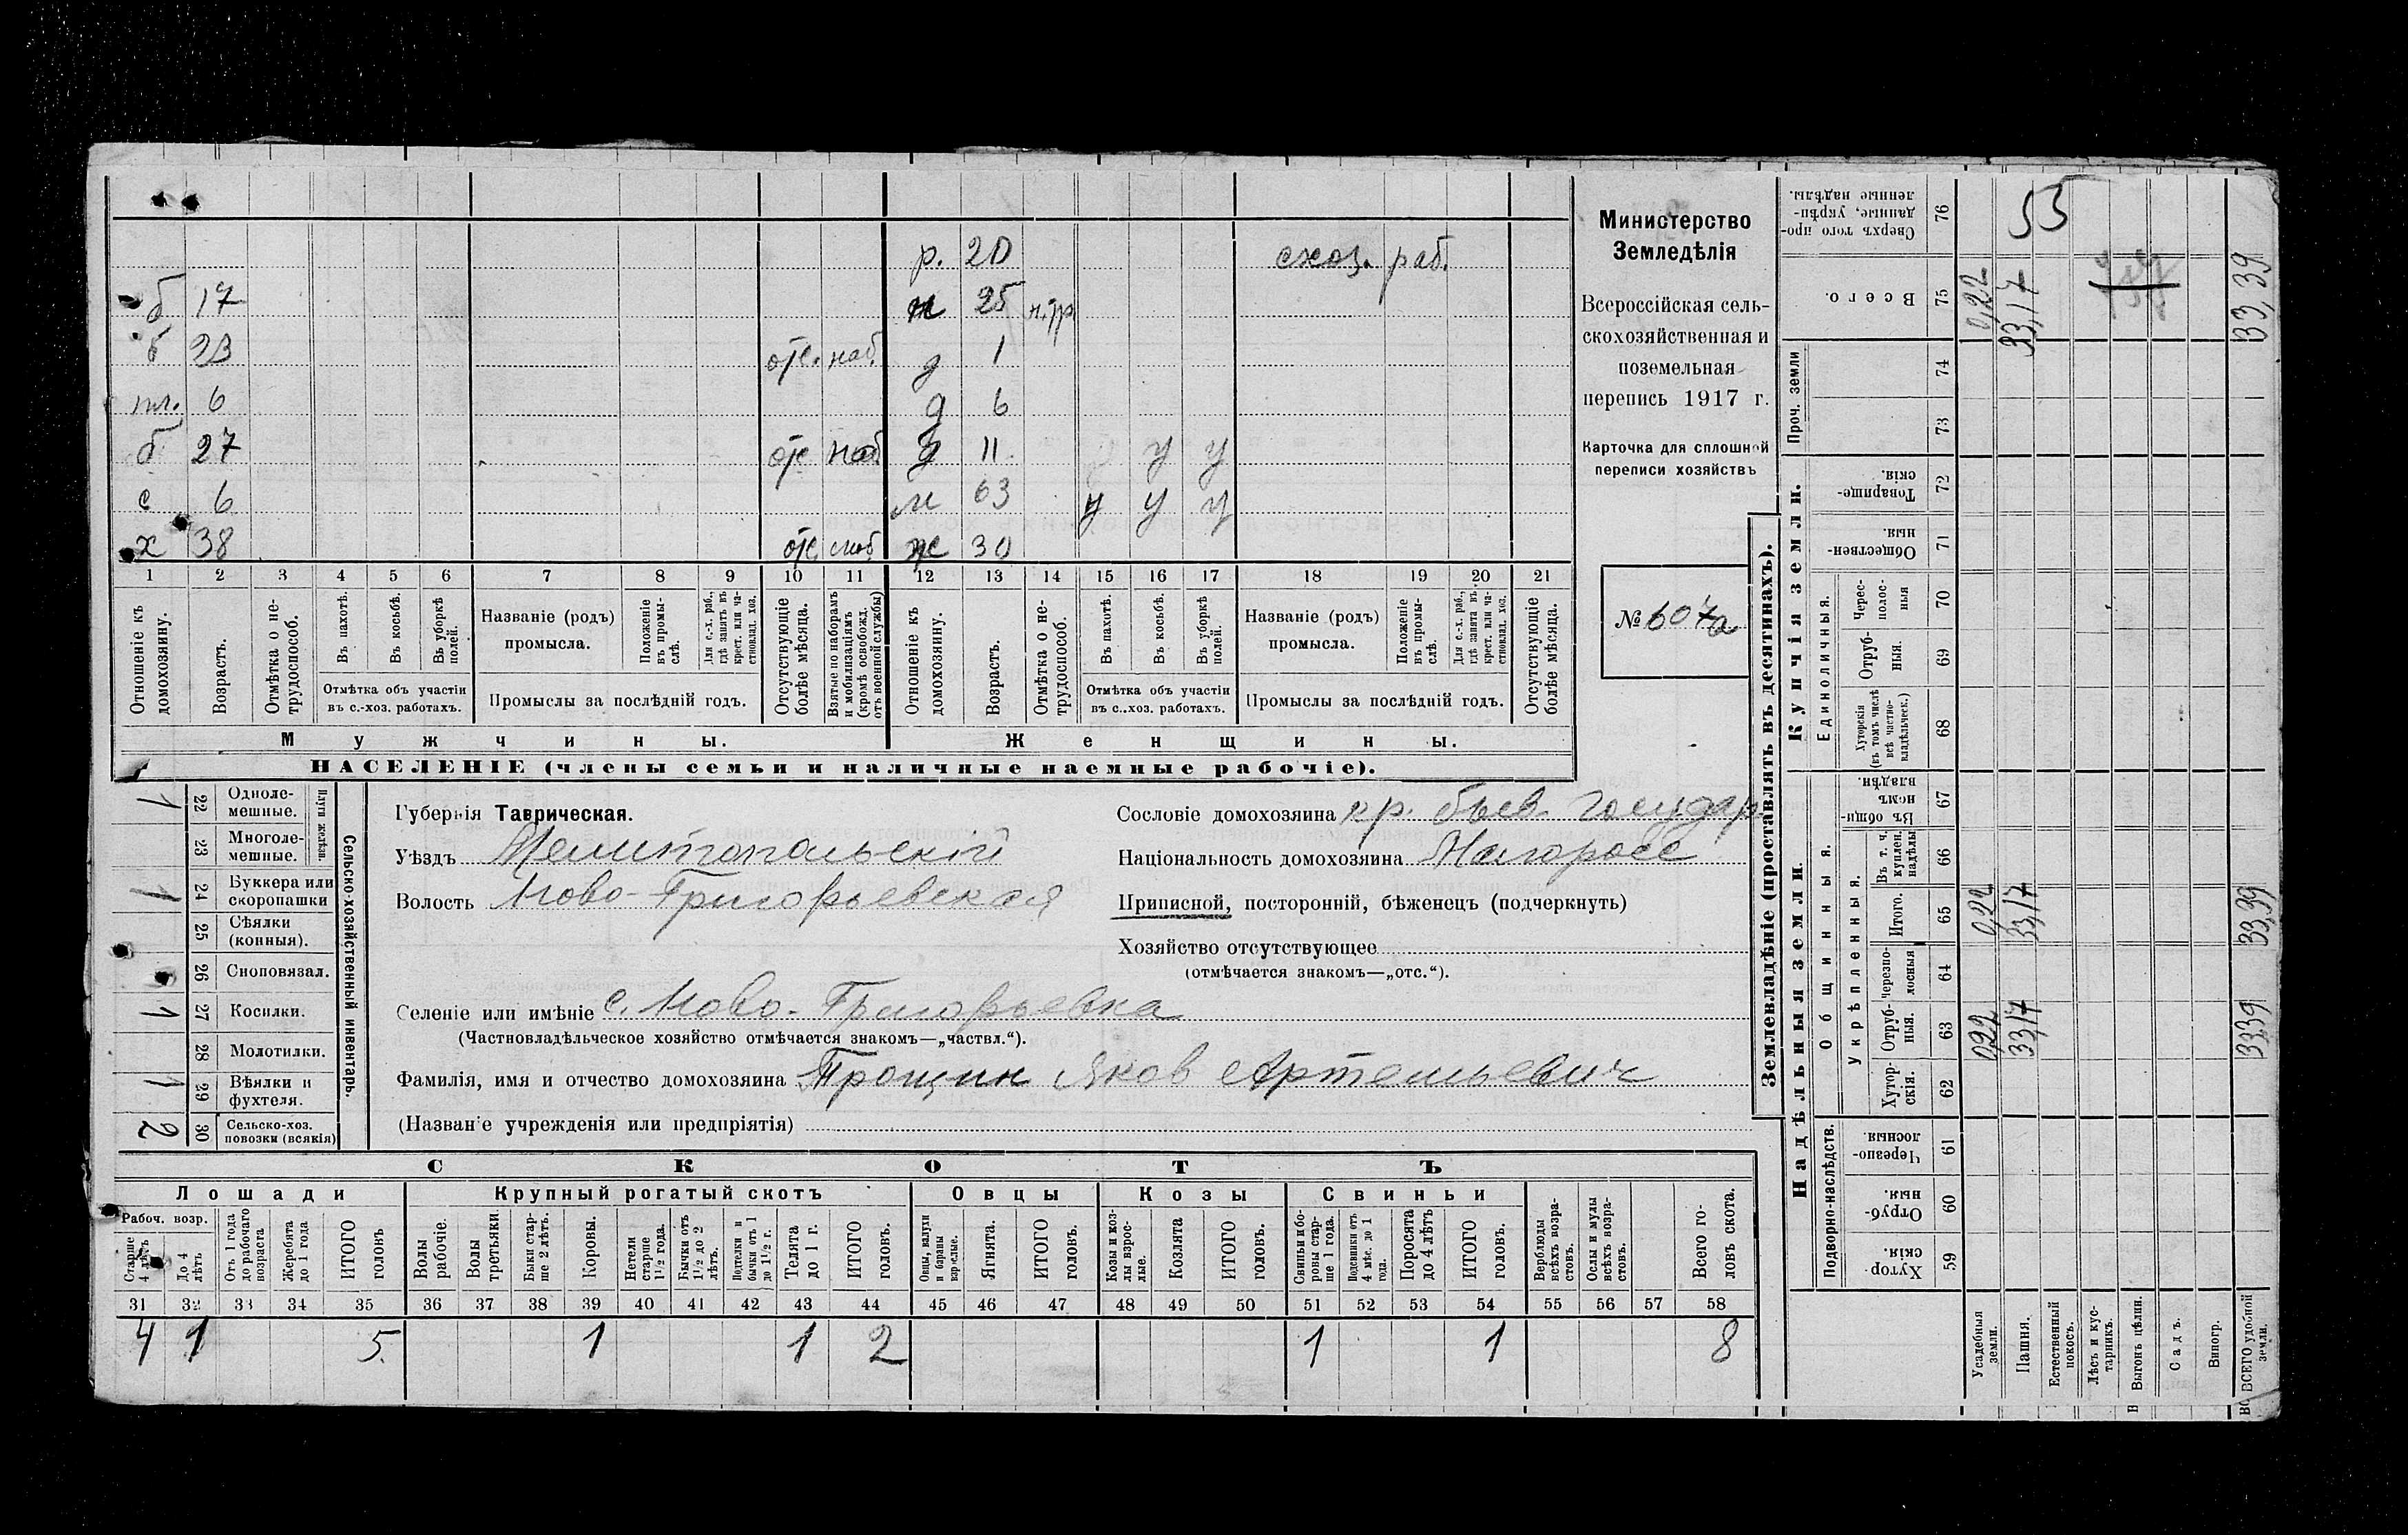 р. 20 схоз. раб.
б 17 ж 25 н.тр.
б 23 отс. наб. д 1
пл. 6 д 6
б 27 отс наб д 11 у у у
с 6 м 63 у у у
х 38 отс моб ж 30
1 2 3 4 5 6 7 8 9 10 11 12 13 14 15 16 17 18 19 20 21
Отношеніе къ домохозяину.
Возрастъ.
Отмѣтка о нетрудоспособ.
Въ пахотѣ.
Въ косьбѣ.
Въ уборкѣ полей.
Отмѣтка объ участіи
въ с.-хоз. работахъ.
Названіе (родъ)
промысла.
Положеніе въ промыслѣ.
Для с.-х. раб., гдѣ занятъ въ крест. или частновлад. хоз.
Промыслы за послѣдній годъ.
Отсутствующіе болѣе мѣсяца.
Взятые по наборамъ и мобилизаціямъ (кромѣ освобожд. отъ военной службы)
Отношеніе къ домохозяину.
Возрастъ.
Отмѣтка о нетрудоспособ.
Въ пахотѣ.
Въ косьбѣ.
Въ уборкѣ полей.
Отмѣтка объ участіи
въ с..хоз. работахъ.
Названіе (родъ)
промысла.
Положеніе въ промыслѣ.
Для с.-х. раб., гдѣ занята въ крест. или частновлад. хоз.
Промыслы за послѣдній годъ.
Отсутствующіе болѣе мѣсяца.
Мужчины. Женщины.
НАСЕЛЕНІЕ (члены семьи и наличные наемные рабочіе).
Министерство
Земледѣлія
Всероссійская сель-
скохозяйственная и
поземельная
перепись 1917 г.
Карточка для сплошной
переписи хозяйствъ
№ 607а
Сельско-хозяйственный инвентарь.
Плуги желѣзн.
1 22 Одноле-
мешные.
23 Многоле-
мешные.
1 24 Буккера или
скоропашки
25 Сѣялки
(конныя).
26 Сноповязал.
1 27 Косилки.
28 Молотилки.
1 29 Вѣялки и
фухтеля.
2 30 Сельско-хоз.
повозки (всякія)
Губернія Таврическая.
Уѣздъ Мелитопольскій
Волость Ново-Григорьевская
Селеніе или имѣніе с. Ново-Григорьевка
(Частновладѣльческое хозяйство отмѣчается знакомъ—„частвл.“).
Фамилія, имя и отчество домохозяина Трощин Яков Артемьевич
(Названіе учрежденія или предпріятія)
Сословіе домохозяина кр. быв. государ.
Національность домохозяина Малоросс
Приписной, посторонній, бѣженецъ (подчеркнуть)
Хозяйство отсутствующее
(отмѣчается знакомъ—„отс.“).
СКОТЪ
Лошади Крупный рогатый скотъ Овцы Козы Свиньи
Рабоч. возр.
Старше 4 лѣтъ
До 4 лѣтъ
Отъ 1 года до рабочаго возраста
Жеребята до 1 года
ИТОГО головъ
Волы рабочіе.
Волы третьяки.
Быки старше 2 лѣтъ.
Коровы.
Нетели старше 1 1/2 года.
Бычки отъ 1 1/2 до 2 лѣтъ.
Подтелки и бычки отъ 1 до 1 1/2 г.
Телята до 1 г.
ИТОГО головъ.
Овцы, валухи и бараны взрослые.
Ягнята.
ИТОГО головъ.
Козы и козлы взрослые.
Козлята
ИТОГО головъ.
Свиньи и боровы старше 1 года.
Подсвинки отъ 4 мѣс. до 1 года.
Поросята до 4 лѣтъ
ИТОГО головъ.
Верблюды всѣхъ возрастовъ.
Ослы и мулы всѣхъ возрастовъ.
Всего головъ скота.
31 32 33 34 35 36 37 38 39 40 41 42 43 44 45 46 47 48 49 50 51 52 53 54 55 56 57 58
4 1 5. 1 1 2 1 1 8
Землевладѣніе (проставлять въ десятинахъ).
Надѣльныя земли. Купчія земли.
Подворно-наслѣдств.
Общинныя.
Укрѣпленныя.
Единоличныя.
Проч. земли
Хуторскія. 59
Отрубныя. 60
Черезполосныя. 61
Хуторскія. 62
Отрубныя. 63
Черезполосныя 64
Итого. 65
Въ т. ч. куплен. надѣлы 66
Въ общинномъ владѣн. 67
Хуторскія (въ томъ числѣ всѣ частновладѣльческ.) 68
Отрубныя. 69
Чересполосныя 70
Общественныя. 71
Товарищескія. 72
73
74
Всего. 75
Сверхъ того проданные, укрѣпленные надѣлы. 76
Усадебныя земли. 0,22 0,22 0,22
Пашня. 33,17 33,17 33,17 55
Естественный покосъ.
Лѣсъ и кустарникъ.
Выгонъ цѣлин.
Садъ.
Виногр.
ВСЕГО удобной земли. 33,39 33,39 33,39